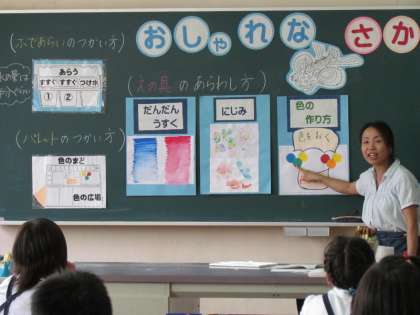 おしゃれな さか
(ふであらいのつかい方)
あらう
すすぐ すすぐ つけ水
① ②
(えの具のあらわし方)
だんだん
うすく
にじみ
色の
作り方
(パレットのつかい方)
色のまど
色の広場